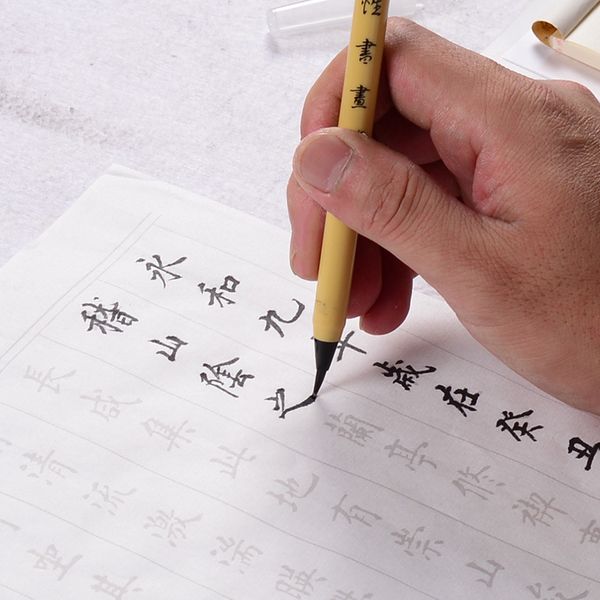 書畫
永和九年歲在癸丑
稽山陰之蘭亭修禊事
長咸集此地有崇山
清流激湍暎
坐其